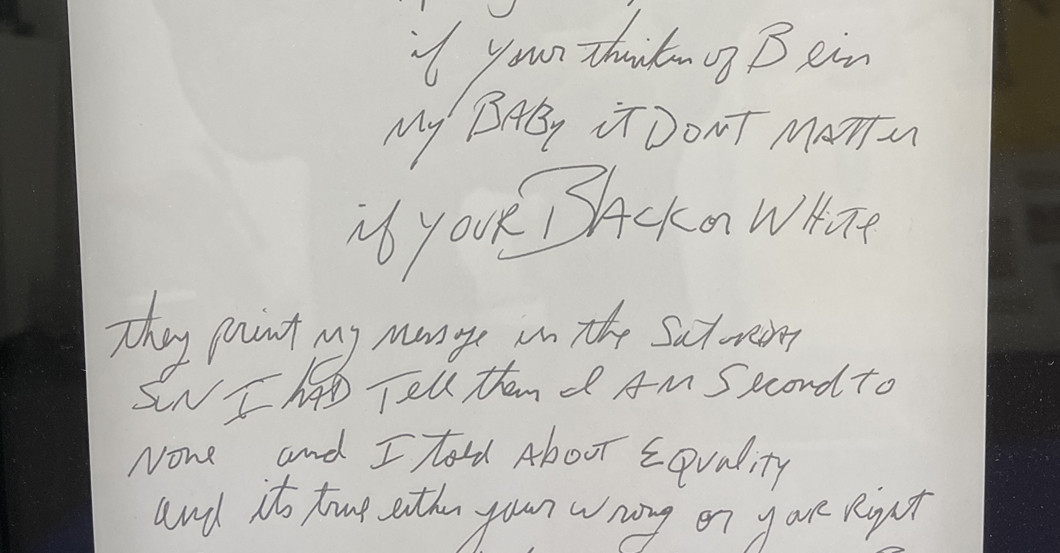 if your thinken of Bein
my BABy it DONT MATTER
if youR BlAck or WHite
they print my message in the Saturday
SuN I hAD Tell them I AM Second to
None and I told About EQuality
and its true either your wrong or youR Right